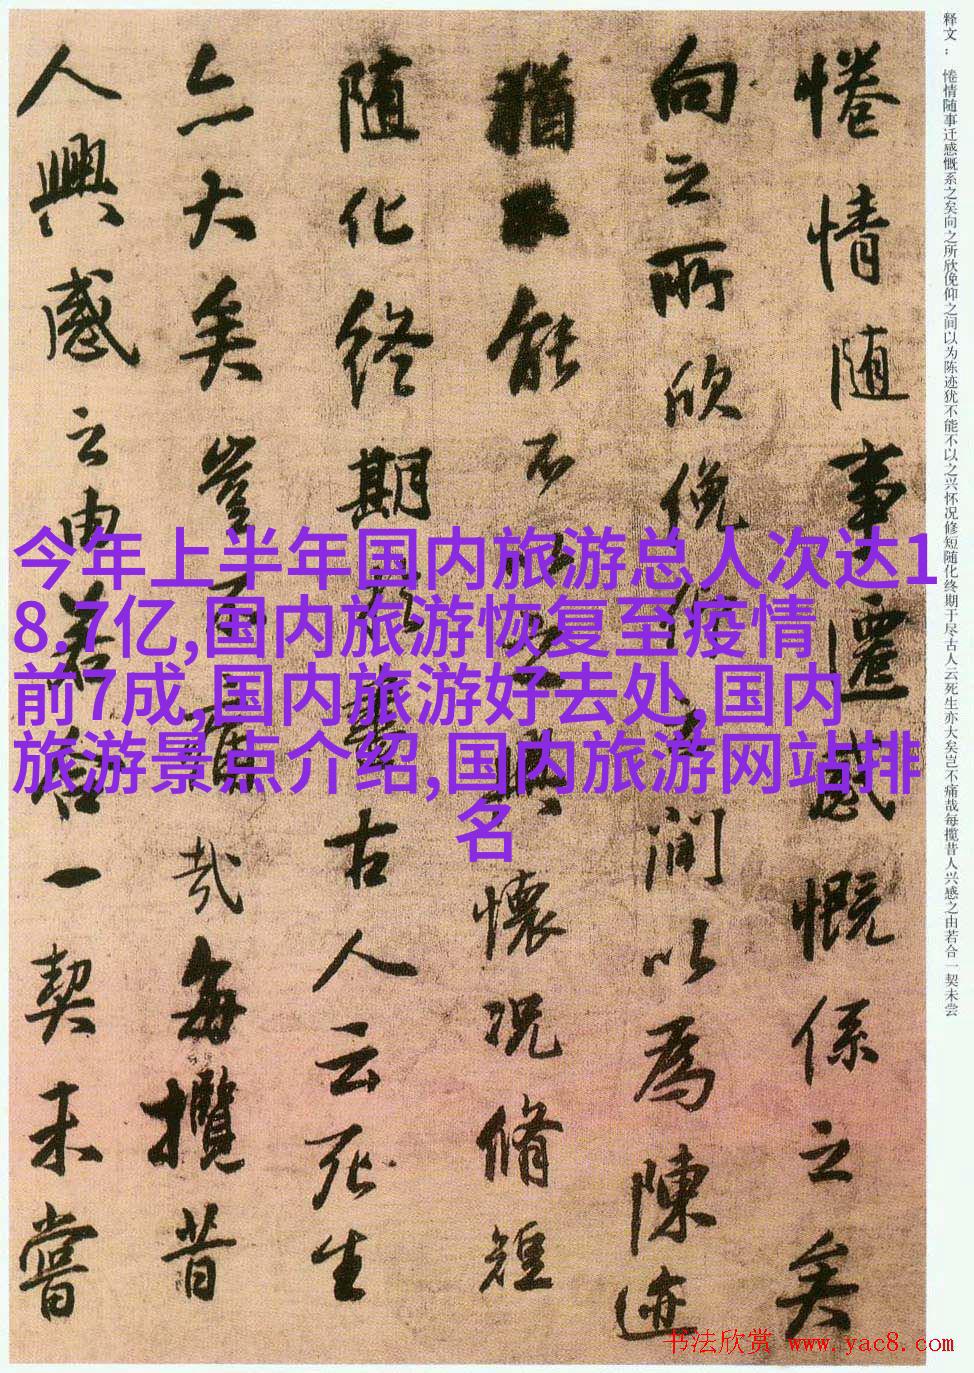 释文：惓情随事迁感慨系之矣向之所欣俛仰之间以为陈迹犹不能不以之兴怀况修短随化终期于尽古人云死生亦大矣岂不痛哉每揽昔人兴感之由若合一契未尝
惓情随事遷感慨係之矣
向之所欣俛仰之间以為陳迹
猶不能不以之興懷况脩短
随化終期於盡古人云死生
亦大矣豈不痛哉每攬昔
人興感之由若合一契未嘗
今年上半年国内旅游总人次达1
8.7亿,国内旅游恢复至疫情
前7成,国内旅游好去处,国内
旅游景点介绍,国内旅游网站排
名
书法欣赏 www.yac8.com